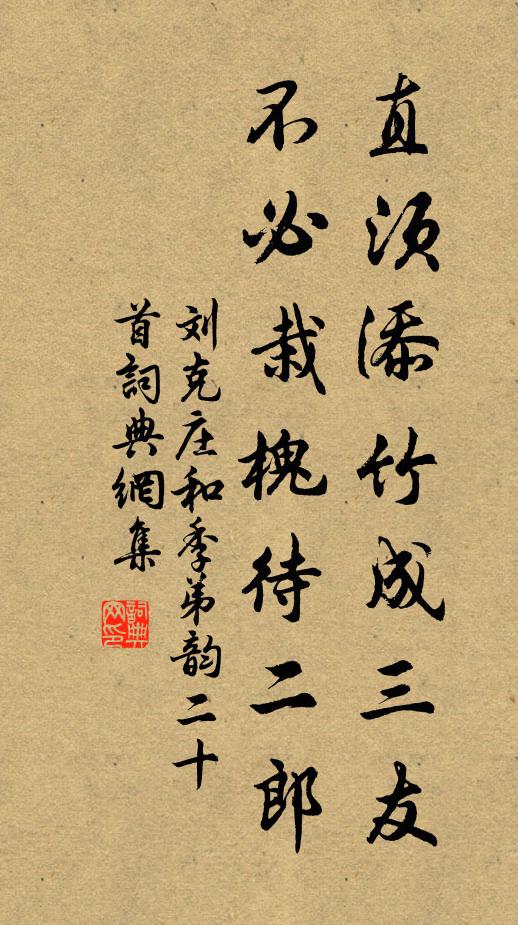 直须添竹成三友
不必栽槐待二郎
刘克庄和季弟韵二十
首詞典網集
詞典
网印